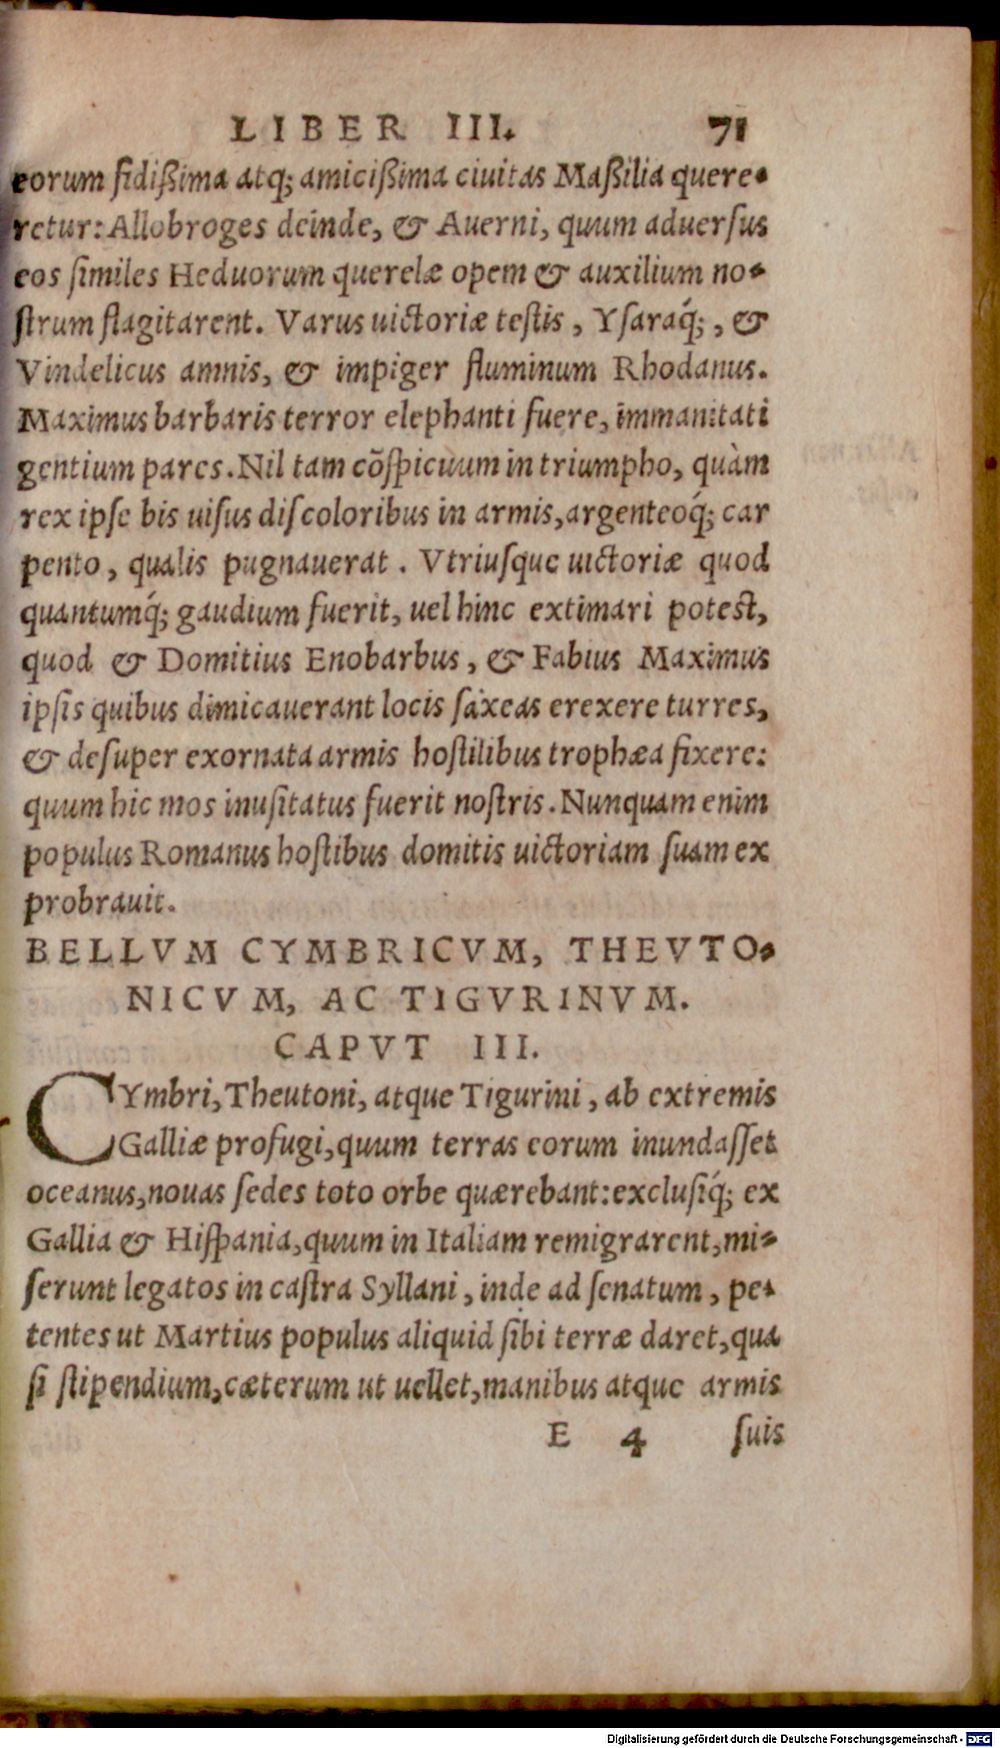 LIBER III. 71
eorum fidißima atq; amicißima ciuitas Maßilia quere-
retur: Allobroges deinde, & Auerni, quum aduersus
eos similes Heduorum querelæ opem & auxilium no-
strum flagitarent. Varus uictoriæ testis, Ysaraq́;, &
Vindelicus amnis, & impiger fluminum Rhodanus.
Maximus barbaris terror elephanti fuere, immanitati
gentium pares. Nil tam cõspicuum in triumpho, quàm
rex ipse bis uisus discoloribus in armis, argenteoq́; car
pento, qualis pugnauerat. Vtriusque uictoriæ quod
quantumq́; gaudium fuerit, uel hinc extimari potest,
quod & Domitius Enobarbus, & Fabius Maximus
ipsis quibus dimicauerant locis saxeas erexere turres,
& desuper exornata armis hostilibus trophæa fixere:
quum hic mos inusitatus fuerit nostris. Nunquam enim
populus Romanus hostibus domitis uictoriam suam ex
probrauit.
BELLVM CYMBRICVM, THEVTO-
NICVM, AC TIGVRINVM.
CAPVT III.
CYmbri, Theutoni, atque Tigurini, ab extremis
Galliæ profugi, quum terras eorum inundasset
oceanus, nouas sedes toto orbe quærebant: exclusiq́; ex
Gallia & Hispania, quum in Italiam remigrarent, mi-
serunt legatos in castra Syllani, inde ad senatum, pe-
tentes ut Martius populus aliquid sibi terræ daret, qua
si stipendium, cæterum ut uellet, manibus atque armis
E 4 suis
Digitalisierung gefördert durch die Deutsche Forschungsgemeinschaft - DFG